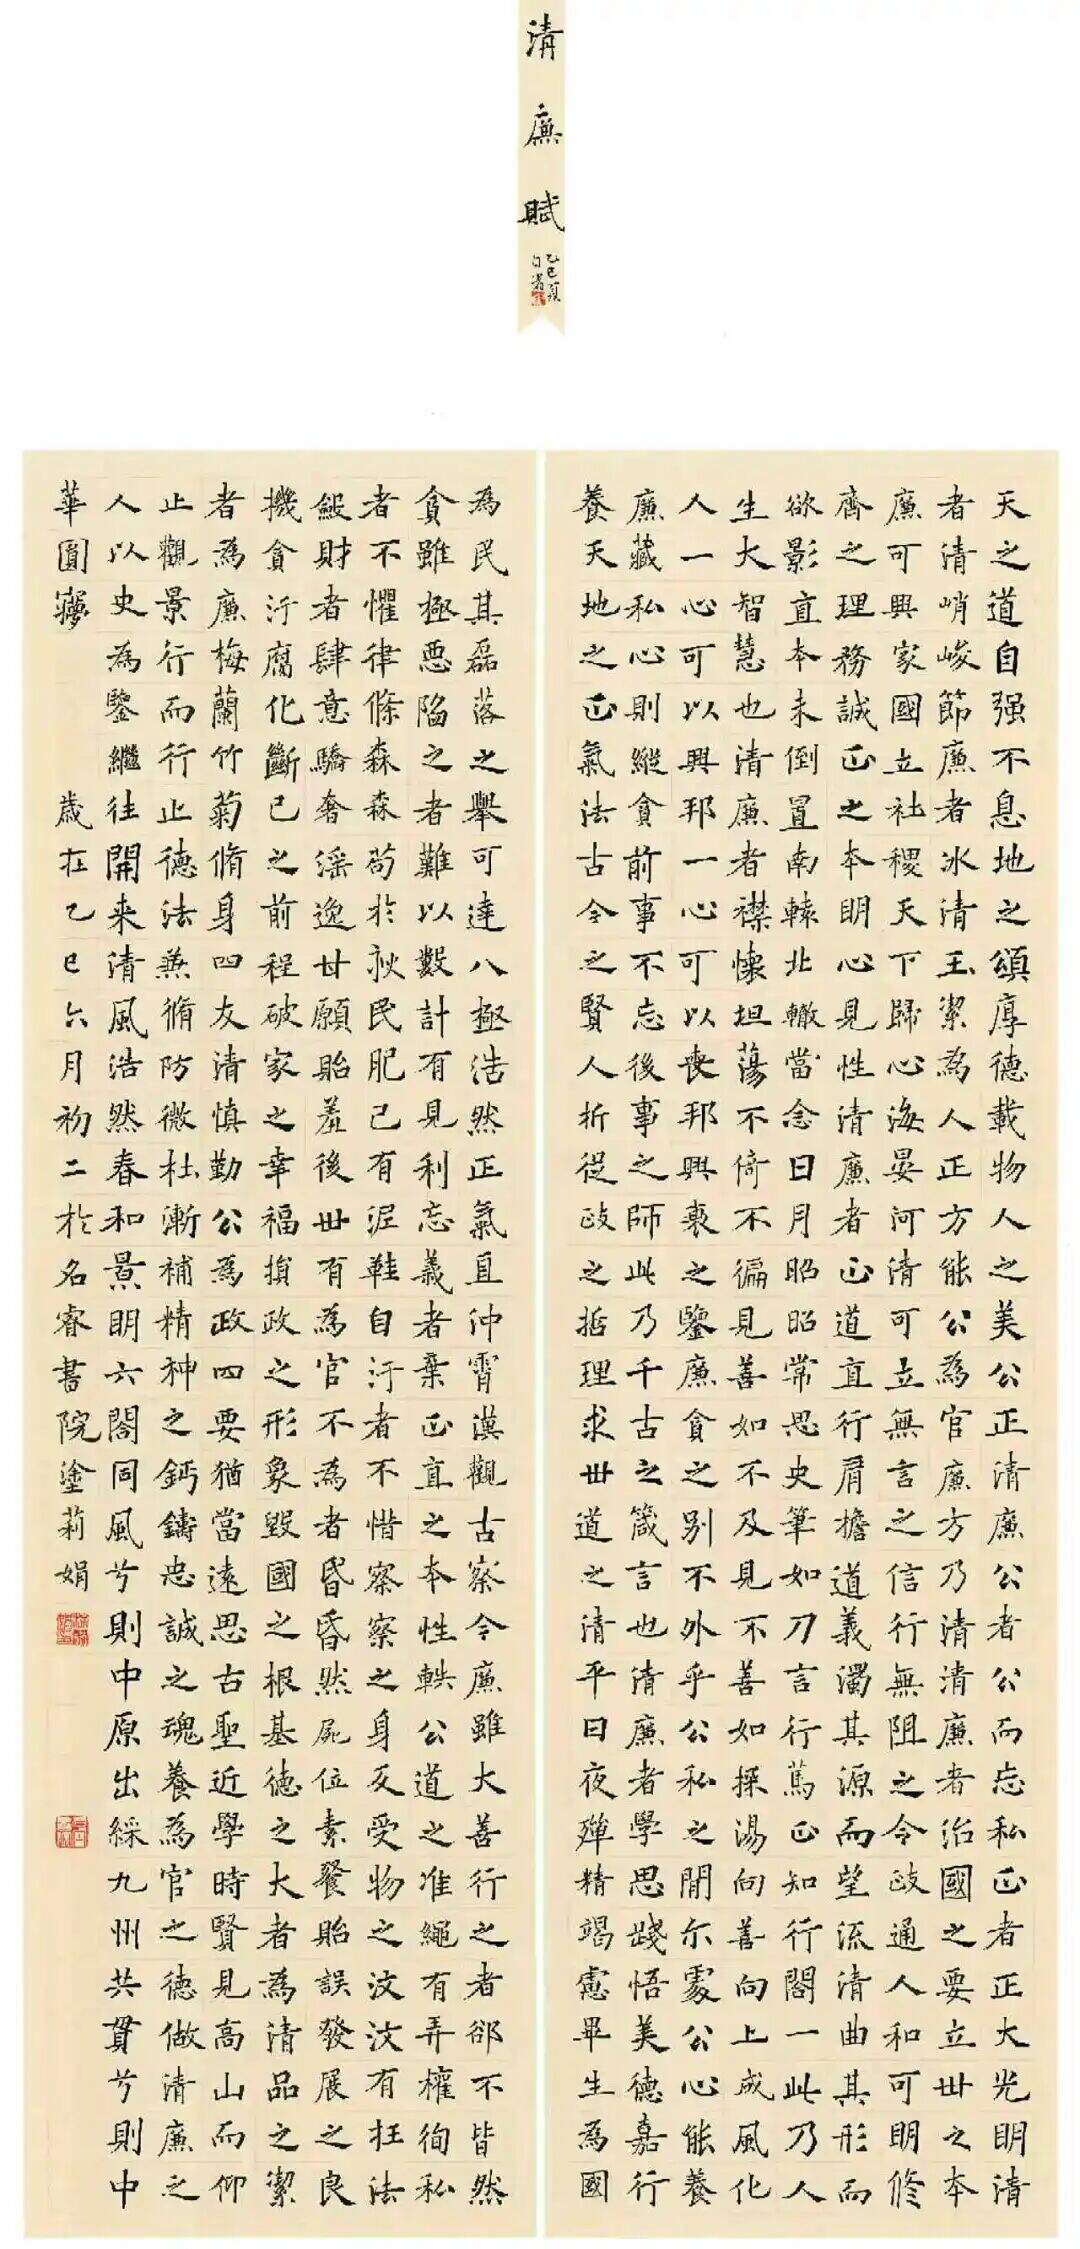 清廉賦
乙巳夏
天之道自强不息地之頌厚德載物人之美公正清廉公者公而忘私正者正大光明清
者清峭峻節廉者冰清玉潔為人正方能公為官廉方乃清清廉者治國之要立世之本
廉可興家國立社稷天下歸心海晏河清可立無言之信行無阻之令政通人和可明修
齊之理務誠正之本明心見性清廉者正道直行肩擔道義濁其源而望流清曲其形而
欲影直本末倒置南轅北轍當念日月昭昭常思史筆如刀言行篤正知行閤一此乃人
生大智慧也清廉者襟懷坦蕩不倚不偏見善如不及見不善如探湯向善向上成風化
人一心可以興邦一心可以喪邦興衰之鑒廉貪之別不外乎公私之間尔處公心能養
廉藏私心則縱貪前事不忘後事之師此乃千古之箴言也清廉者學思踐悟美德嘉行
養天地之正氣法古今之賢人折從政之哲理求世道之清平日夜殫精竭慮畢生為國
為民其磊落之舉可達八極浩然正氣直沖霄漢觀古察今廉雖大善行之者郤不皆然
貪雖極惡陷之者難以數計有見利忘義者棄正直之本性軼公道之准繩有弄權徇私
者不懼律條森森苟於敂民肥己有泥鞋自汙者不惜察察之身反受物之汶汶有枉法
斂財者肆意驕奢淫逸甘願貽羞後世有為官不為者昏昏然屍位素餐貽誤發展之良
機貪汙腐化斷已之前程破家之幸福損政之形象毀國之根基德之大者為清品之潔
者為廉梅蘭竹菊脩身四友清慎勤公為政四要猶當遠思古聖近學時賢見高山而仰
止觀景行而行止德法兼脩防微杜漸補精神之鈣鑄忠誠之魂養為官之德做清廉之
人以史為鑒繼往開来清風浩然春和景明六閤同風兮則中原出綵九州共貫兮則中
華圓夢 歲在乙巳六月初二於名睿書院塗莉娟